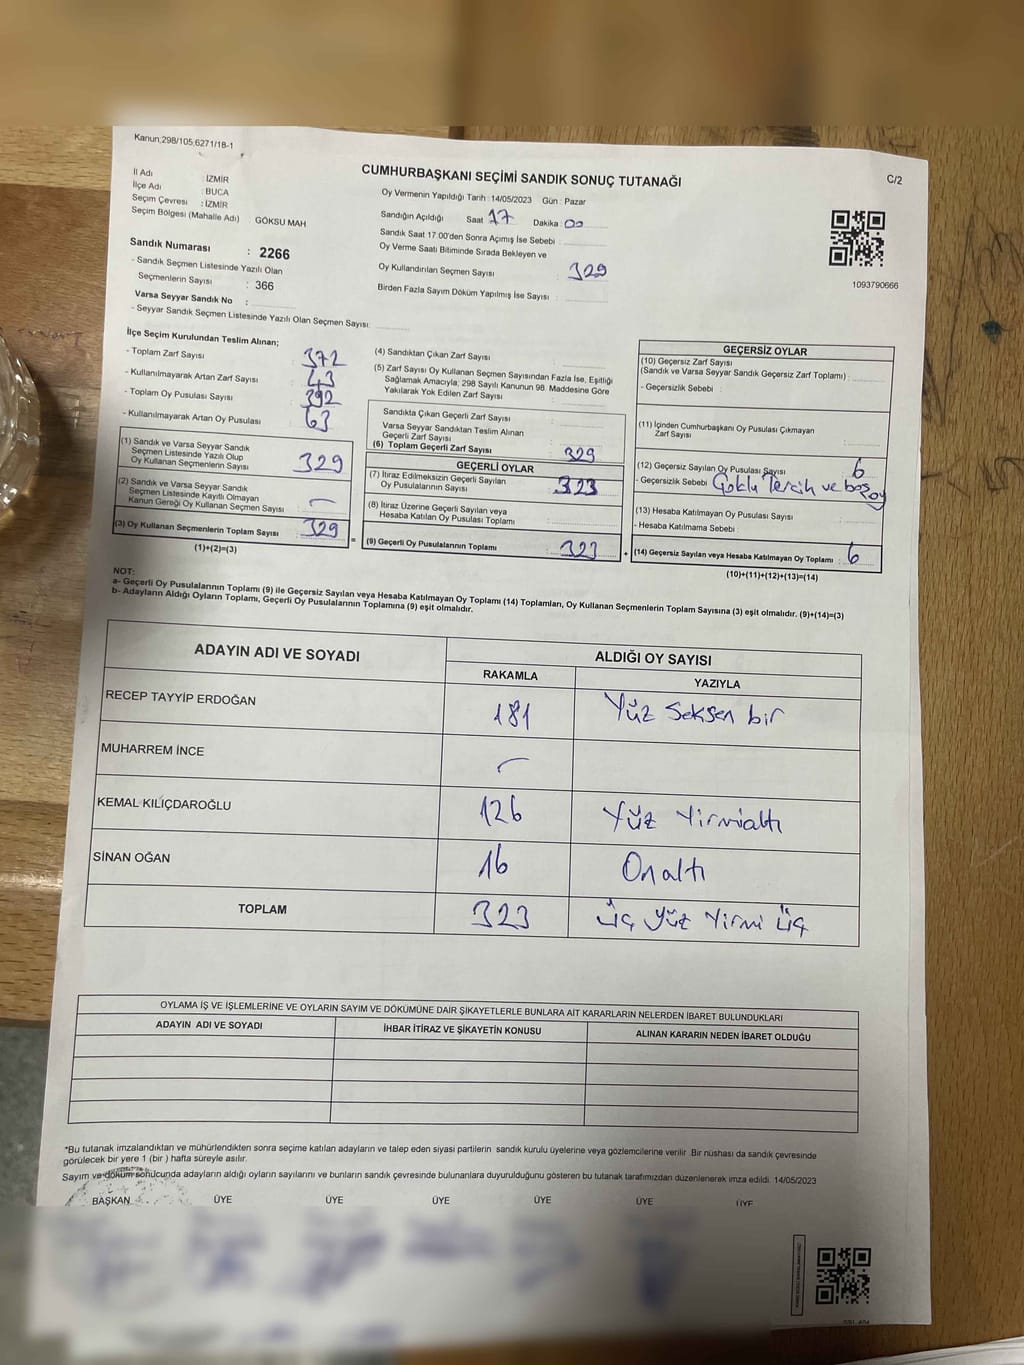 Kanun;298/105;6271/18-1
C/2
CUMHURBAŞKANI SEÇİMİ SANDIK SONUÇ TUTANAĞI
İl Adı : İZMİR
İlçe Adı : BUCA
Seçim Çevresi : İZMİR
Seçim Bölgesi (Mahalle Adı) GÖKSU MAH
Sandık Numarası : 2266
- Sandık Seçmen Listesinde Yazılı Olan
Seçmenlerin Sayısı : 366
Varsa Seyyar Sandık No :
- Seyyar Sandık Seçmen Listesinde Yazılı Olan Seçmen Sayısı:
Oy Vermenin Yapıldığı Tarih : 14/05/2023 Gün : Pazar
Sandığın Açıldığı Saat 17 Dakika : 00
Sandık Saat 17.00'den Sonra Açımış İse Sebebi :
Oy Verme Saati Bitiminde Sırada Bekleyen ve
Oy Kullandırılan Seçmen Sayısı : 329
Birden Fazla Sayım Döküm Yapılmış İse Sayısı :
1093790666
İlçe Seçim Kurulundan Teslim Alınan;
- Toplam Zarf Sayısı : 372
- Kullanılmayarak Artan Zarf Sayısı : 43
- Toplam Oy Pusulası Sayısı : 392
- Kullanılmayarak Artan Oy Pusulası : 63
(1) Sandık ve Varsa Seyyar Sandık
Seçmen Listesinde Yazılı Olup
Oy Kullanan Seçmenlerin Sayısı : 329
(2) Sandık ve Varsa Seyyar Sandık
Seçmen Listesinde Kayıtlı Olmayan
Kanun Gereği Oy Kullanan Seçmen Sayısı : -
(3) Oy Kullanan Seçmenlerin Toplam Sayısı : 329
(1)+(2)=(3)
=
(4) Sandıktan Çıkan Zarf Sayısı :
(5) Zarf Sayısı Oy Kullanan Seçmen Sayısından Fazla İse, Eşitliği
Sağlamak Amacıyla; 298 Sayılı Kanunun 98. Maddesine Göre
Yakılarak Yok Edilen Zarf Sayısı :
Sandıkta Çıkan Geçerli Zarf Sayısı :
Varsa Seyyar Sandıktan Teslim Alınan
Geçerli Zarf Sayısı :
(6) Toplam Geçerli Zarf Sayısı : 329
GEÇERLİ OYLAR
(7) İtiraz Edilmeksizin Geçerli Sayılan
Oy Pusulalarının Sayısı : 323
(8) İtiraz Üzerine Geçerli Sayılan veya
Hesaba Katılan Oy Pusulası Toplamı :
(9) Geçerli Oy Pusulalarının Toplamı : 323
+
GEÇERSİZ OYLAR
(10) Geçersiz Zarf Sayısı
(Sandık ve Varsa Seyyar Sandık Geçersiz Zarf Toplamı) :
- Geçersizlik Sebebi :
(11) İçinden Cumhurbaşkanı Oy Pusulası Çıkmayan
Zarf Sayısı :
(12) Geçersiz Sayılan Oy Pusulası Sayısı : 6
- Geçersizlik Sebebi Çoklu Tercih ve boş oy
(13) Hesaba Katılmayan Oy Pusulası Sayısı :
- Hesaba Katılmama Sebebi :
(14) Geçersiz Sayılan veya Hesaba Katılmayan Oy Toplamı : 6
(10)+(11)+(12)+(13)=(14)
NOT:
a- Geçerli Oy Pusulalarının Toplamı (9) ile Geçersiz Sayılan veya Hesaba Katılmayan Oy Toplamı (14) Toplamları, Oy Kullanan Seçmenlerin Toplam Sayısına (3) eşit olmalıdır. (9)+(14)=(3)
b- Adayların Aldığı Oyların Toplamı, Geçerli Oy Pusulalarının Toplamına (9) eşit olmalıdır.
ADAYIN ADI VE SOYADI ALDIĞI OY SAYISI
RAKAMLA YAZIYLA
RECEP TAYYİP ERDOĞAN 181 Yüz Seksen bir
MUHARREM İNCE -
KEMAL KILIÇDAROĞLU 126 Yüz Yirmialtı
SİNAN OĞAN 16 Onaltı
TOPLAM 323 Üç Yüz Yirmi Üç
OYLAMA İŞ VE İŞLEMLERİNE VE OYLARIN SAYIM VE DÖKÜMÜNE DAİR ŞİKAYETLERLE BUNLARA AİT KARARLARIN NELERDEN İBARET BULUNDUKLARI
ADAYIN ADI VE SOYADI İHBAR İTİRAZ VE ŞİKAYETİN KONUSU ALINAN KARARIN NEDEN İBARET OLDUĞU
*Bu tutanak imzalandıktan ve mühürlendikten sonra seçime katılan adayların ve talep eden siyasi partilerin sandık kurulu üyelerine veya gözlemcilerine verilir .Bir nüshası da sandık çevresinde
görülecek bir yere 1 (bir ) hafta süreyle asılır.
Sayım ve döküm sonucunda adayların aldığı oyların sayılarını ve bunların sandık çevresinde bulunanlara duyurulduğunu gösteren bu tutanak tarafımızdan düzenlenerek imza edildi. 14/05/2023
BAŞKAN ÜYE ÜYE ÜYE ÜYE ÜYE ÜYE